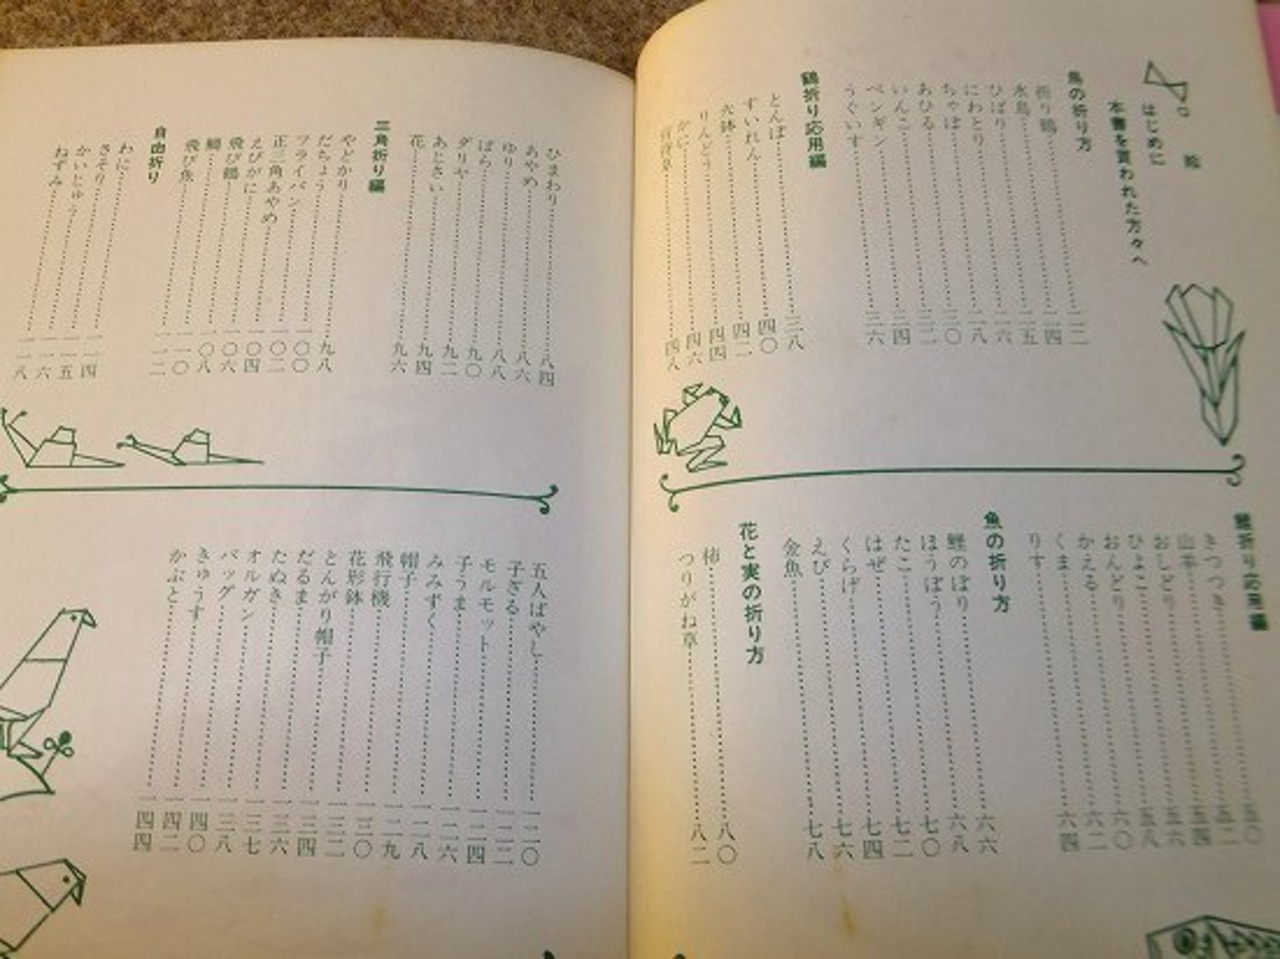 絵
はじめに
本書を買われた方々へ
鳥の折り方
折り鶴……二二
水鳥……二四
ひばり……二五
にわとり……二六
ちゃぼ……二八
あひる……三〇
いんこ……三二
ペンギン……三四
うぐいす……三六
鶴折り応用編
とんぼ……三八
すいれん……四〇
火鉢……四二
りんどう……四四
かに……四六
……四八
鶴折り応用編
きつつき……五〇
山羊……五二
おしどり……五四
ひよこ……五六
おんどり……五八
かえる……六〇
くま……六二
りす……六四
魚の折り方
鯉のぼり……六六
ほうぼう……六八
たこ……七〇
はぜ……七二
くらげ……七四
えび……七六
金魚……七八
花と実の折り方
柿……八〇
つりがね草……八二
ひまわり……八四
あやめ……八六
ゆり……八八
ばら……九〇
ダリヤ……九二
あじさい……九四
花……九六
三角折り編
やどかり……九八
だちょう……一〇〇
フライパン……一〇二
正三角あやめ……一〇四
えびがに……一〇六
飛び鶴……一〇八
鯛……一一〇
飛び魚……一一二
自由折り
わに……一一四
さそり……一一五
かいじゅう……一一六
ねずみ……一一八
五人ばやし……一二〇
子ざる……一二二
モルモット……一二四
子うま……一二六
みみずく……一二八
帽子……一二九
飛行機……一三〇
花形鉢……一三二
とんがり帽子……一三四
だるま……一三六
たぬき……一三七
オルガン……一三八
バッグ……一四〇
きゅうす……一四二
かぶと……一四四